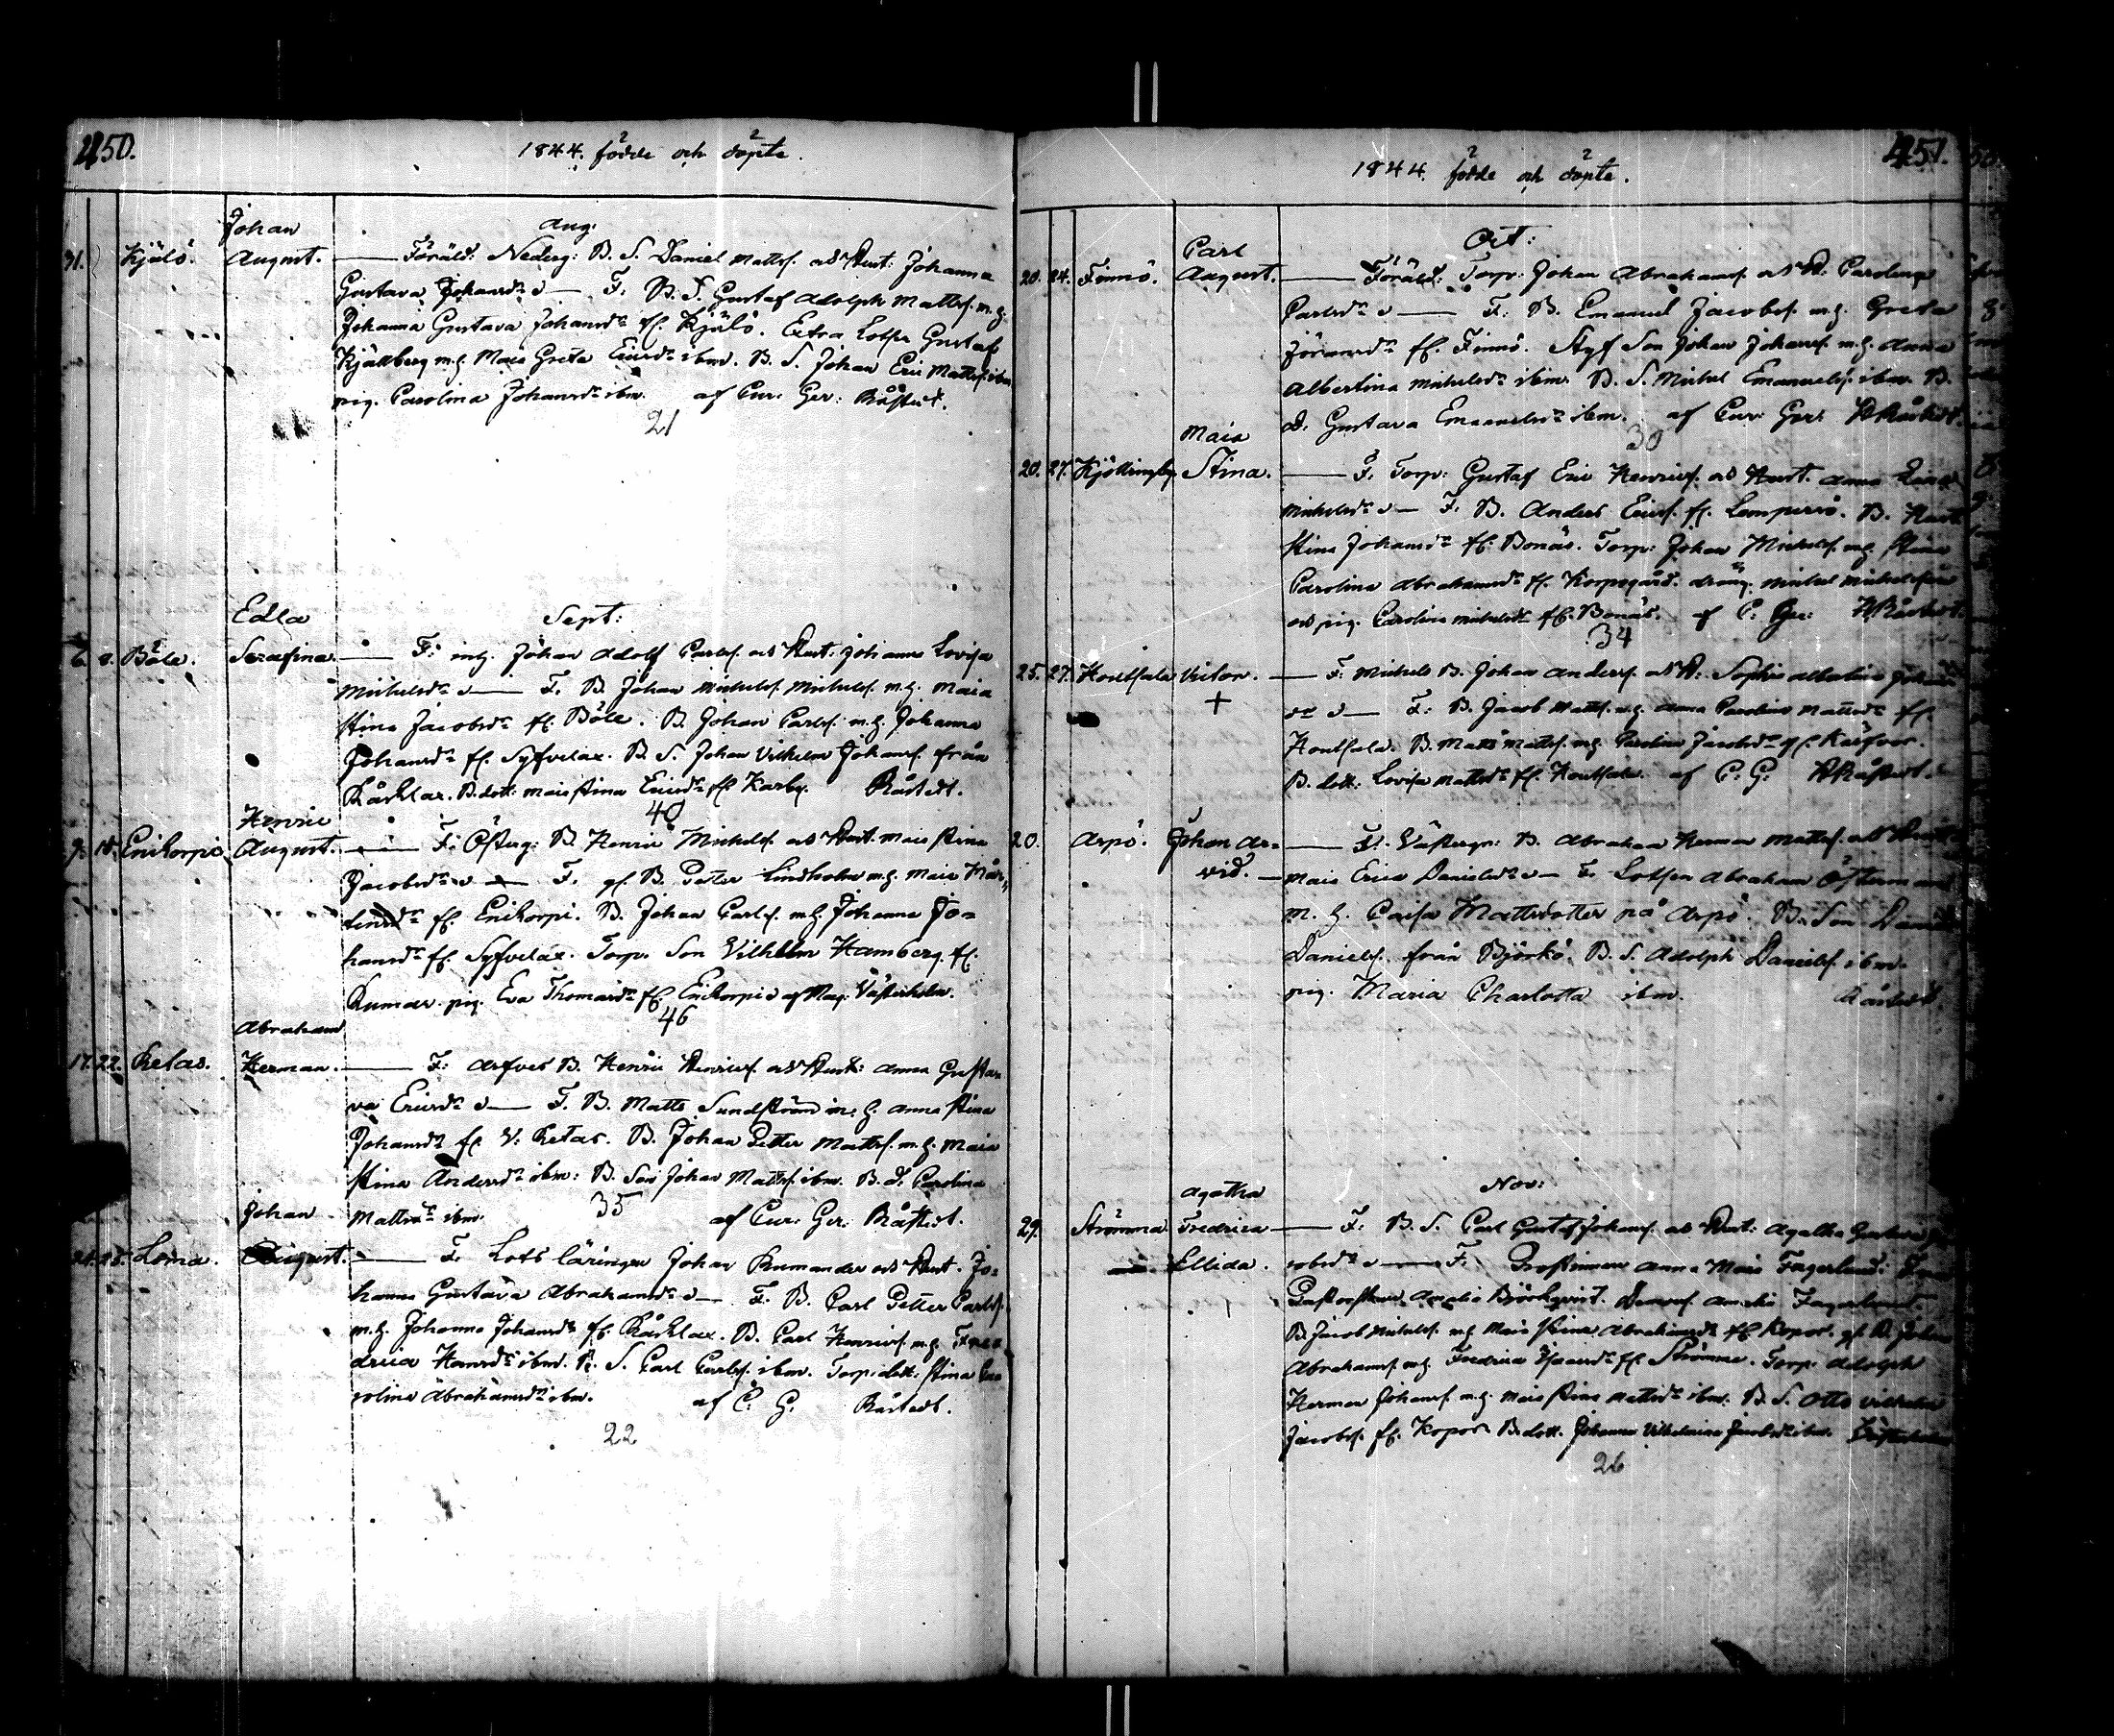 450.
1844. födde och döpte.
Aug:
Johan
31. Kjälö. August. — Föräld: Nederg: B. S. Daniel Mattss. och Hust: Johanna
Gustava Johansdr — F: B. S. Gustaf Adolph Mattss. m. h.
Johanna Gustava Johansdr fr. Kjälö. Extra Lotsen Gustaf
Kjällberg m. h. Maia Greta Ericsdr ibm. B. S. Johan Eric Mattss. ibm
pig. Carolina Johansdr ibm. af Cur: Ger: Råstedt.
21
Edla
Sept:
6. 8. Böle. Serafina. — F: Johan Adolf Carlss. och Hust: Johanna Lovisa
Michelsdr — F. B. Johan Michelss. Michelss. m. h. Maia
Stina Jacobsdr fr. Böle. B. Johan Carlss. m. h. Johanna
Johansdr fr. Syfvelax. B. S. Johan Vilhelm Johanss. från
Bårklax. B. dott: Maia Stina Ericsdr fr. Karby. Råstedt.
40
Henric
9. 15. Enikorpi August. — F: Österg: B. Henric Michelss. och Hust. Maia Stina
Jacobsdr — F. gf. B. Petter Lindholm m. h. Maia Mår-
tensdr fr. Enikorpi. B. Johan Carlss. m. h. Johanna Jo=
hansdr fr. Syfvelax. Torp. Son Vilhelm Hamberg fr.
Kumar. pig. Eva Thomasdr fr. Enikorpi af Mag: Västerholm.
46
Abraham
17. 22. Ketas. Herman. — F: B. Henric Henricss. och Hust: Anna Gusta=
va Ericsdr — F. B. Matts Sundström m. h. Anna Stina
Johansdr fr. V. Ketas. B. Johan Petter Mattss. m. h. Maia
Stina Andersdr ibm: B. Son Johan Mattss. ibm. B. d. Carolina
Mattsdr ibm. af Cur: Ger: Råstedt.
35
Johan
24. 25. Loma. August. — F. Lots läringen Johan Kumander och Hust. Jo=
hanna Gustava Abrahamsdr — F. B. Carl Petter Carlss.
m. h. Johanna Johansdr fr. Bårklax. B. Carl Henricss. m. h. Fre=
drica Hansdr ibm. B. S. Carl Carlss. ibm. Torp. dott: Stina Ca=
rolina Abrahamsdr ibm. af C. G. Råstedt.
22
451.
1844. födde och döpte.
Oct:
Carl
20. 24. Finnö. August. — Föräld: Torp: Johan Abrahamss. och H: Carolina
Carlsdr — F: B. Emanuel Jacobss. m. h. Greta
Jöransdr fr. Finnö. Styf Son Johan Johanss. m. h. Anna
Albertina Michelsdr ibm. B. S. Michel Emanuelss. ibm. B.
d. Gustava Emanuelsdr ibm. af Cur: Ger: Råstedt.
30
Maia
20. 27. Kjöttingeby Stina. — F. Torp: Gustaf Eric Henricss. och Hust. Anna Lisa
Michelsdr — F. B. Anders Ericss. fr. Lemperö. B. Hust.
Stina Johansdr fr. Bonäs. Torp: Johan Michelss. m. h. Stina
Carolina Abrahamsdr fr. Korpogård. dräng. Michel Michelsson
och pig. Carolina Michelsdr fr. Bonäs. af C. Ger: Råstedt.
34
25. 27. Houtsala Victor. — F. Michels B. Johan Anderss. och H: Sophia Albertina Johans=
+
dr — F: B. Jacob Mattss. m. h. Anna Carolina Mattsdr fr.
Houtsala. B. Matts Mattss. m. h. Carolina Jacobsdr
B. dott. Lovisa Mattsdr fr. Houtsala. af C. G: Råstedt.
20. Arpö. Johan Ar=
vid. — F: Västergr: B. Abraham Herman Mattss. och Hust:
Maia Erica Danielsdr — F. Lotsen Abraham Österman
m. h. Caisa Mattsdotter på Arpö. B. Son Daniel
Danielss. från Björkö. B. S. Adolph Danielss. ibm.
pig. Maria Charlotta ibm. Råstedt.
Nov:
Agatha
29. Strömma Fredrica — F: B. S. Carl Gustaf Johanss. och Hust: Agatha Gustava Ja=
Ellida. cobsdr — F: Prostinnan Anna Maia Fagerlund:
Pastorskan Amalia Björkqvist. Demois. Amalia Fagerlund.
B. Jacob Michelss. m. h. Maia Stina Abrahamsdr fr. Kopor. gf. B. Johan
Abrahamss. m. h. Fredrica Isacsdr fr. Strömma. Torp. Adolph
Herman Johanss. m. h. Maia Stina Mattsdr ibm. B. S. Otto Vilhelm
Jacobss. fr. Kopor. B. dott. Johanna Vilhelmina Jacobsdr ibm. Västerholm
26